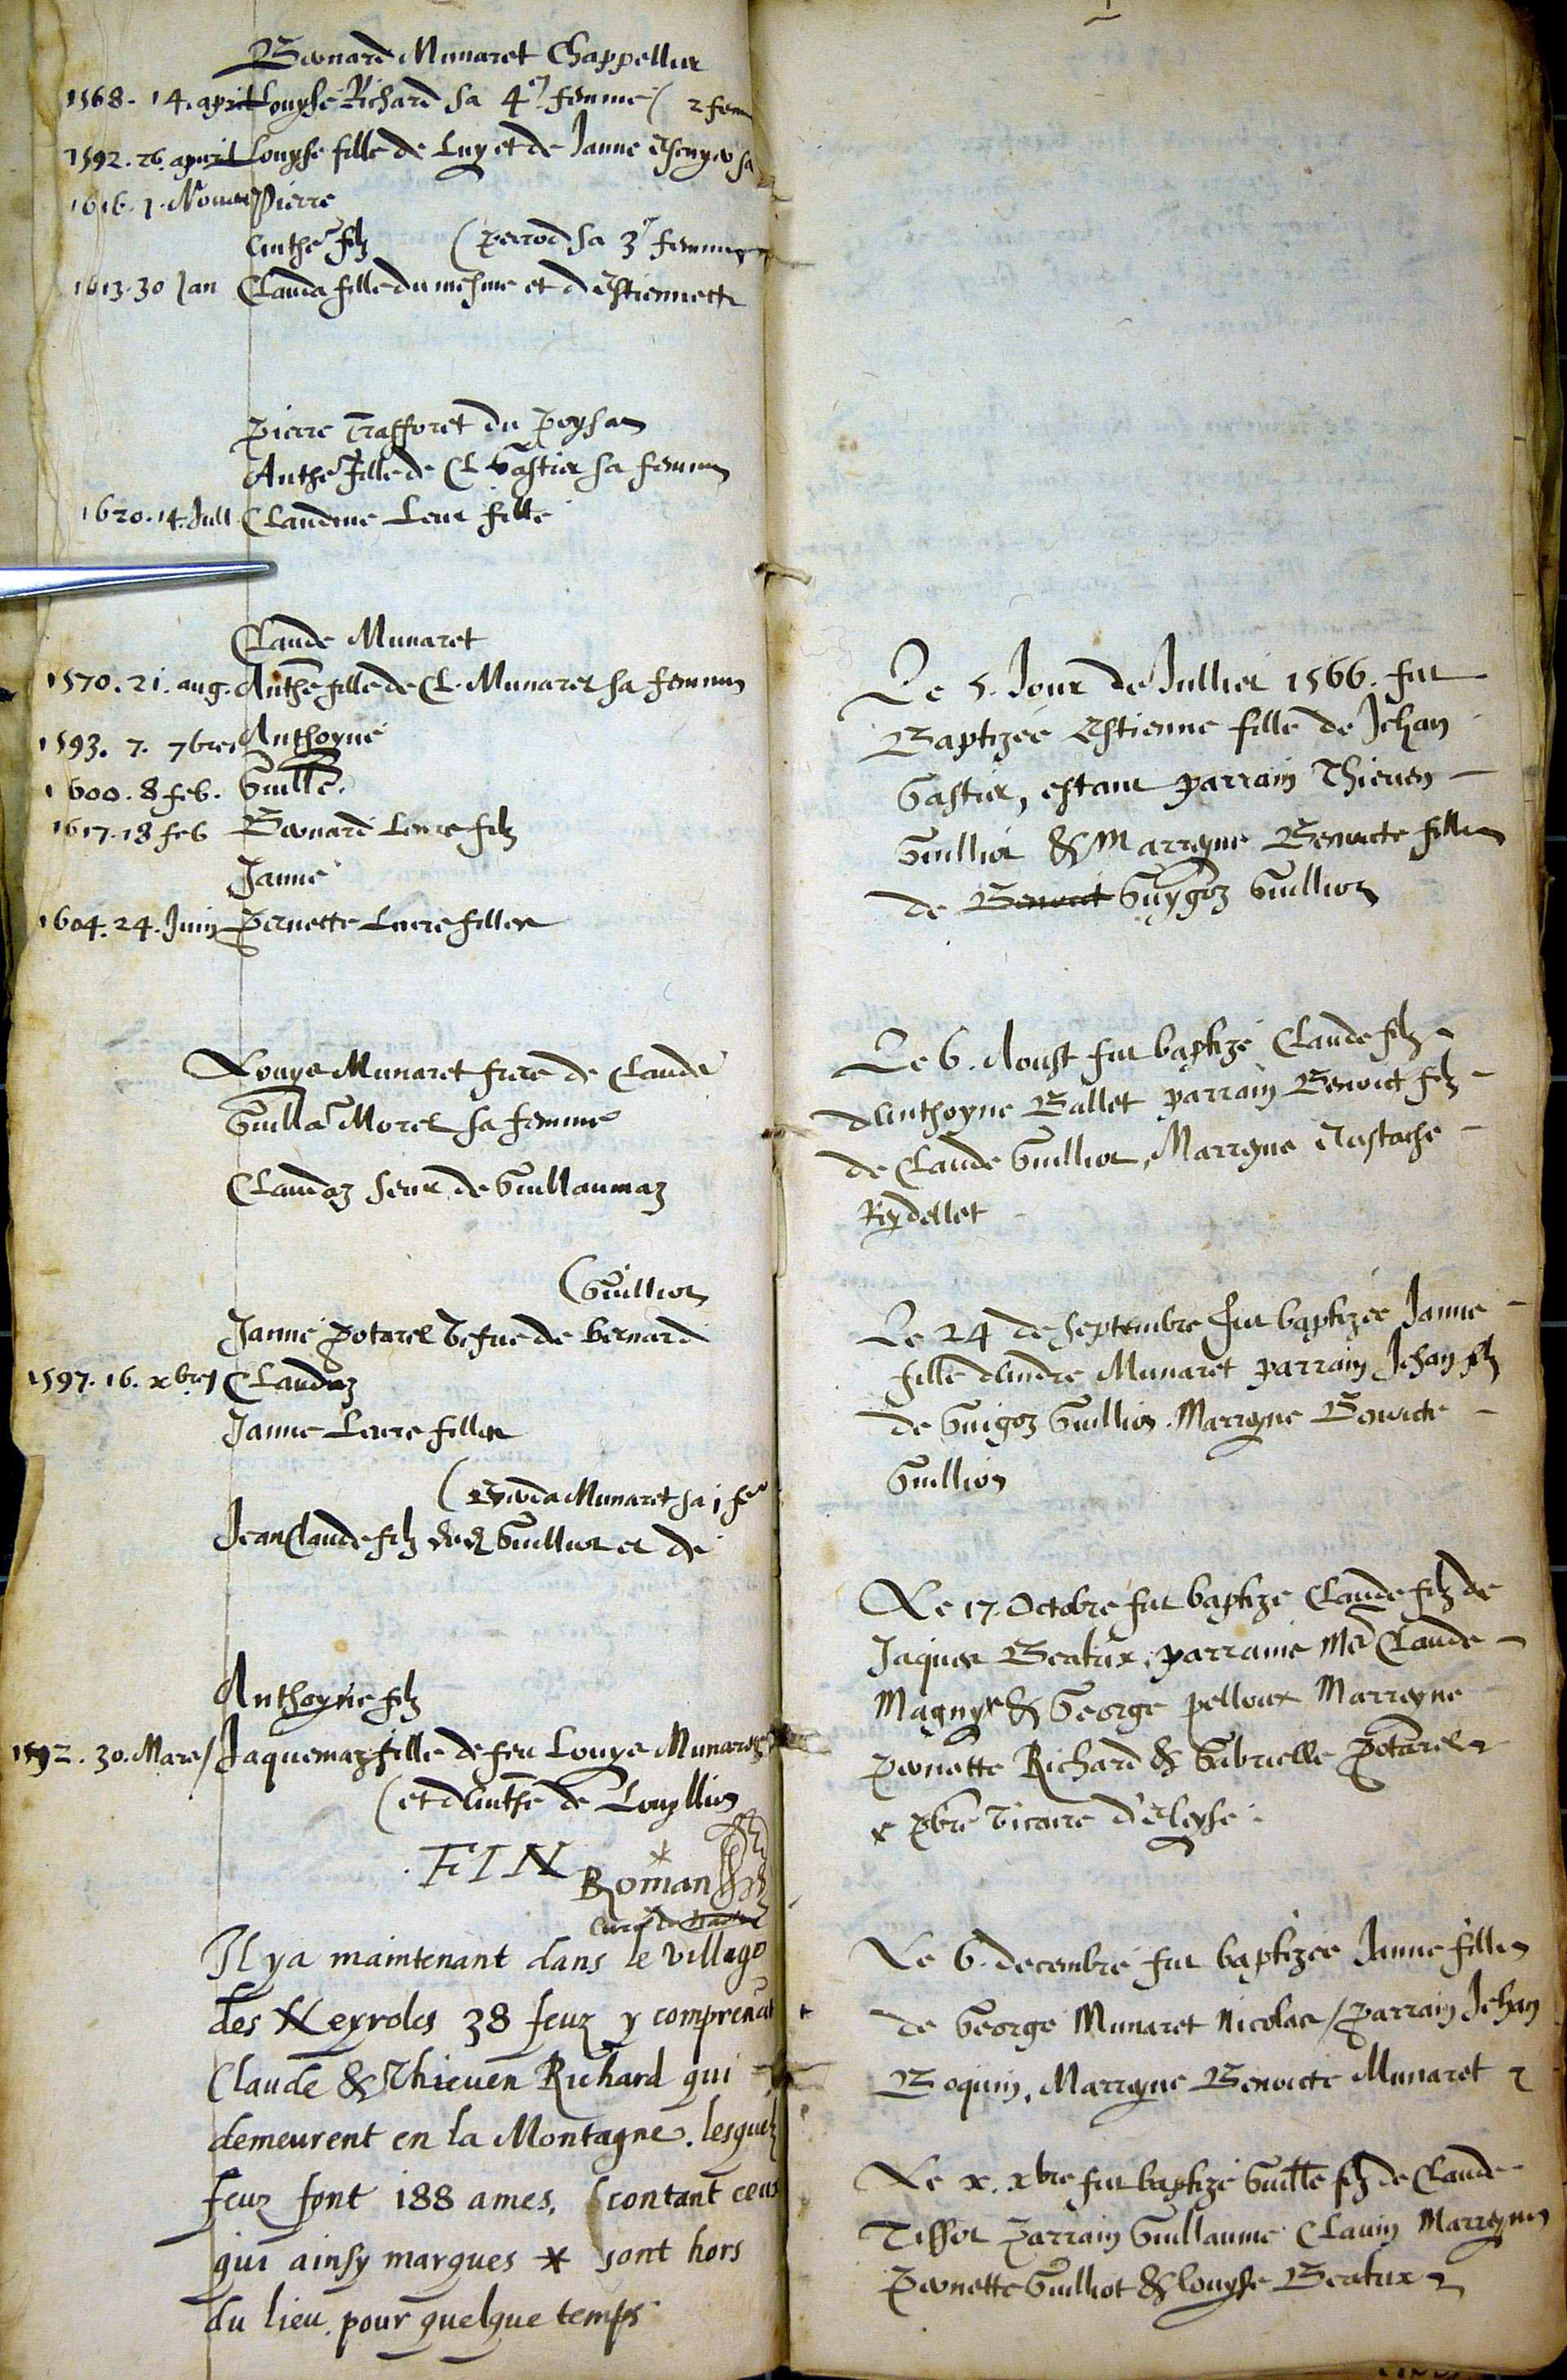 Bernard Munaret Chappellier
1568. 14. april Louyse Richard sa 4e femme / 2 fem
1592. 26. apuril Louyse fille de Luy et de Janne sa
1616. 1. Novem Pierre
Anthe filz (Perrod sa 3e femme
1613. 30 Jan Clauda fille du mesme et d'Estiennette
Pierre Trafforet du Poysat
Anthe fille de Cl. Gastier sa femme
1620. 14. Jull. Claudine Leur fille
Claude Munaret
1570. 21. aug. Anthe fille de Cl. Munaret sa femme
1593. 7. 7bres Anthoyne
1600. 8 feb. Guille.
1617. 18 feb Bernard Leurs filz
Janne
1604. 24. Juin Pernette Leurs filles
Louys Munaret frere de Claude
Guilla Morel sa femme
Claudaz seur de Guillaumaz
(Guilliot
Janne Potarel Vefue de Bernard
1597. 16. xbres Claudaz
Janne Leurs filles
(Munaret sa 1 fe
Jean Claude filz Guilliot et de
Anthoyne filz
1592. 30. Mars / Jaquemaz fille de feu Louys Munaret
(et d'Anthe de Loyllion
FIN
Roman
Curé de
Il ya maintenant dans le village
des Neyroles 38 feuz y comprenat
Claude & Thieuen Richard qui
demeurent en la Montagne. lesquelz
feuz font 188 ames, contant ceus
qui ainsy marques * sont hors
du lieu pour quelque temps
Le 5. Jour de Jullier 1566. fut
Baptizée Estienne fille de Jehan
Gastier, estant parrain Thieuen
Guilliot & Marreyne Benoicte fille
de Benoict Guygoz Guilliot
Le 6. Aoust fut baptizé Claude filz
d'Anthoyne Ballet parrain Benoict filz
de Claude Guilliot, Marreyne Eustache
Reydellet
Le 24 de Septembre fut baptizée Janne
fille d'Andre Munaret parrain Jehan filz
de Guigoz Guilliot. Marreyne Benoicte
Guilliot
Le 17. Octobre fut baptizé Claude filz de
Jaques Beatrix, parrains Mre Claude
Magnyn & George Pelloux Marreyne
Pernette Richard & Gabrielle Potarel
x pbre Vicaire d'Eleyse.
Le 6. decembre fut baptizée Janne fille
de George Munaret Nicolas / parrain Jehan
Boquin, Marreyne Benoicte Munaret
Le x. xbre fut baptizé Guille filz de Claude
Tissot Parrain Guillaume Clavin Marreynes
Pernette Guilliot & Louyse Beatrix